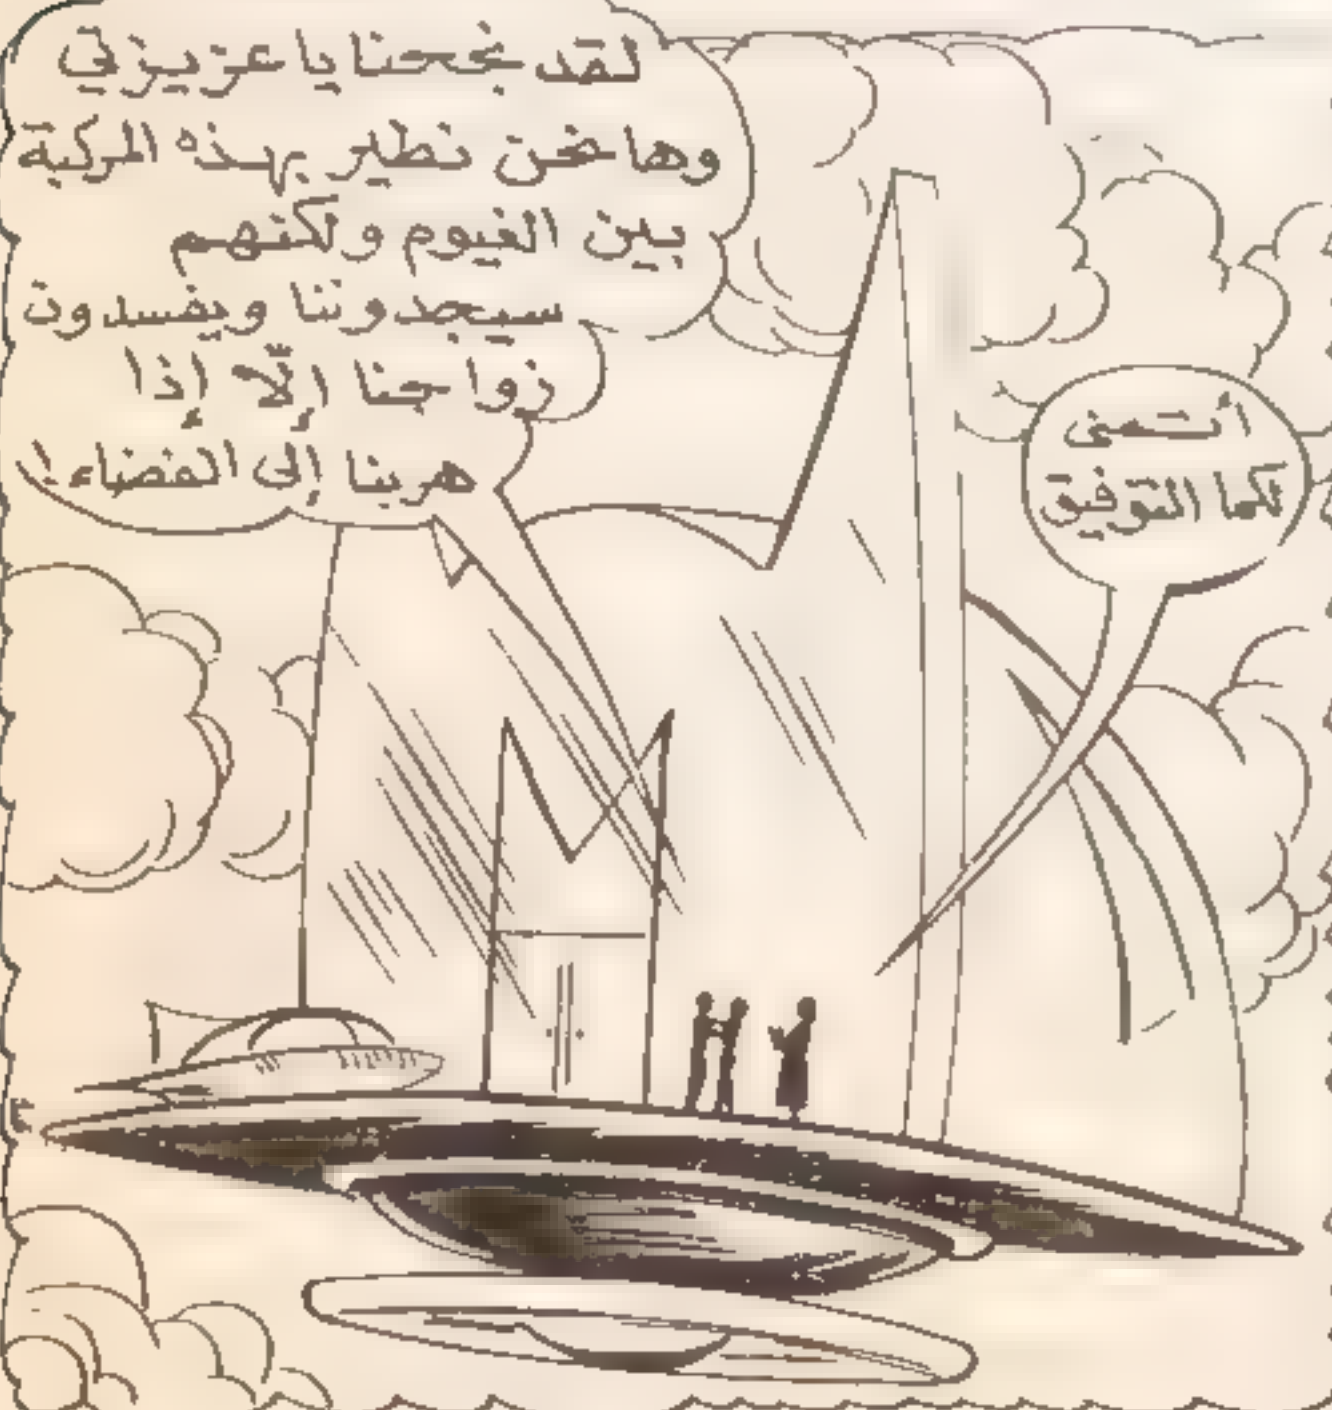 لقد نجحنا يا عزيزتي
وها نحن نطير بهذه المركبة
بين الغيوم ولكنهم
سيجدوننا ويفسدون
زواجنا إلّا إذا
هربنا إلى الفضاء!
أتمنى
لكما التوفيق